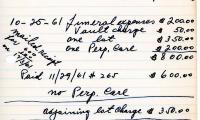 10-25-61 Funeral expenses $200.00
Vault charge $ 50.00
one lot $350.00
one Perp. Care $200.00
$800.00
mailed receipt
Paid 11/29/61 # 265 $600.00
no Perp. Care
adjoining lot charge $350.00